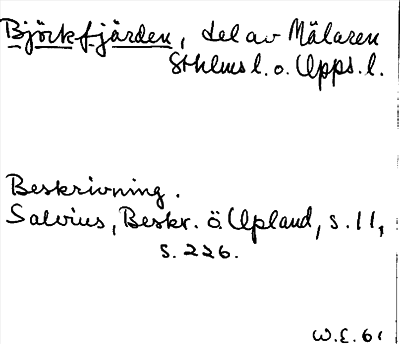 Björkfjärden, del av Mälaren
Sthlms l. o. Upps. l.
Beskrivning.
Salvius, Beskr. ö. Upland, s. 11,
s. 226.
W.E. 61